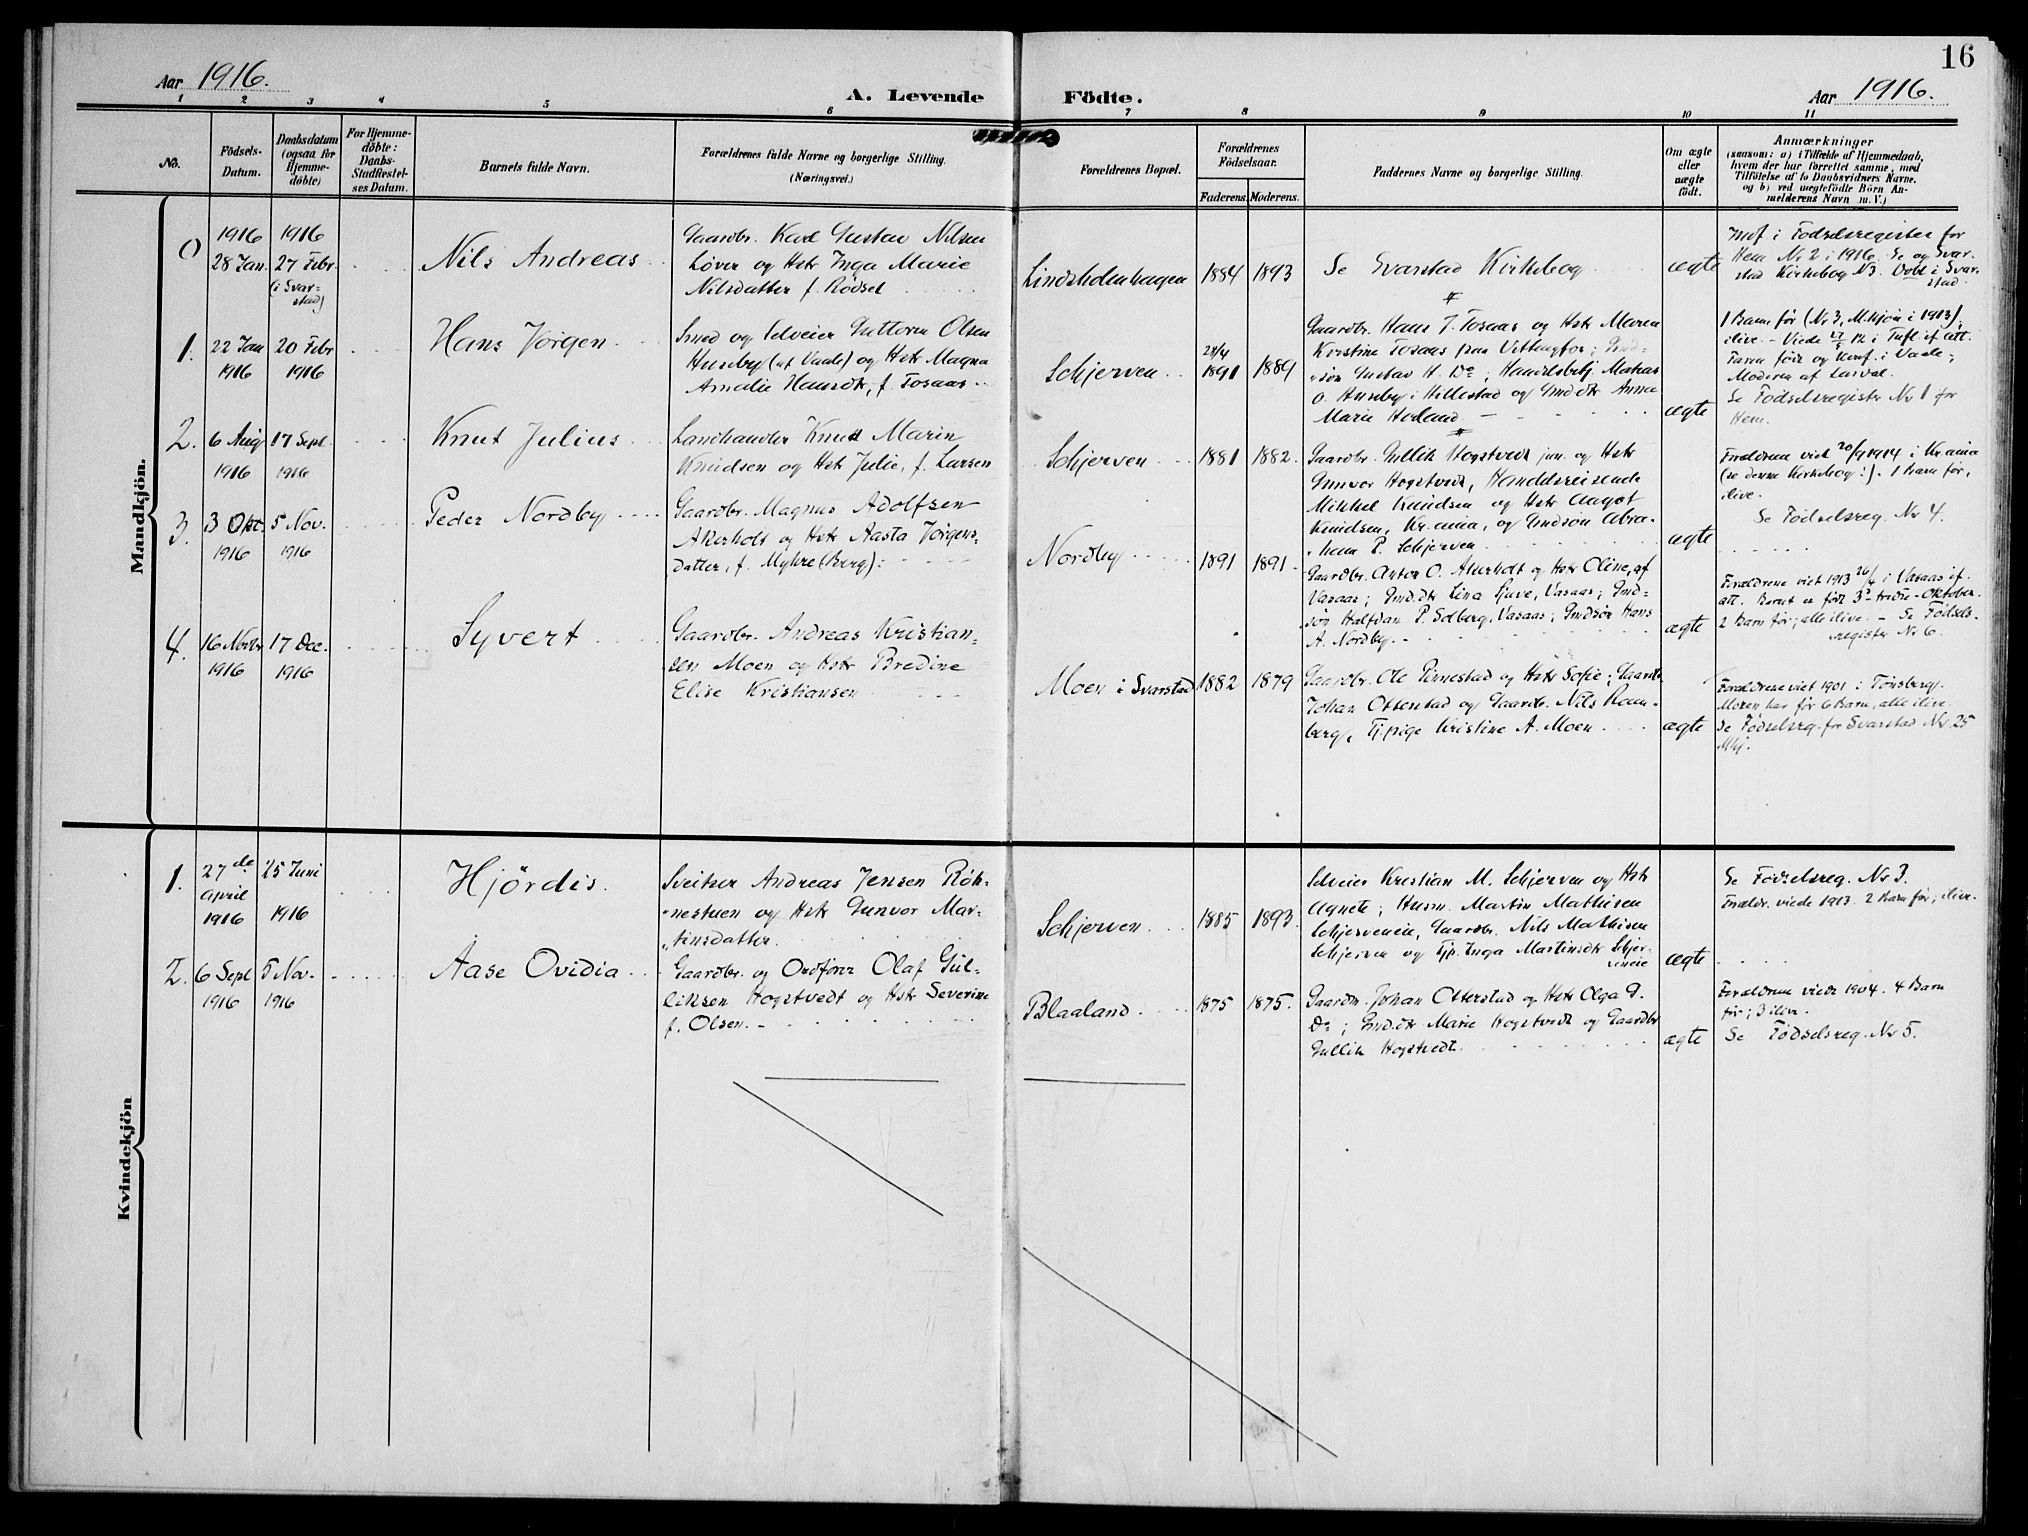 16
Aar 1916.
A. Levende Födte.
Aar 1916.
1 2 3 4 5 6 7 8 9 10 11
No.
Födsels-
Datum.
Daabsdatum
(ogsaa for
Hjemme-
döbte)
For Hjemme-
döbte:
Daabs-
Stadfæstel-
ses Datum.
Barnets fulde Navn.
Forældrenes fulde Navne og borgerlige Stilling.
(Næringsvei.)
Forældrenes Bopæl.
Forældrenes
Födselsaar.
Faderens. Moderens.
Faddernes Navne og borgerlige Stilling.
Om ægte
eller
uægte
födt.
Anmærkninger
(saasom: a) i Tilfælde af Hjemmedaab,
hvem der har forrettet samme, med
Tilföielse af to Daabsvidners Navne,
og b) ved uægtefödte Börn An-
melderens Navn m. V.)
Mandkjön.
0
1916
28 Jan.
1916
27 Febr.
(i Svar-
stad)
Nils Andreas
Gaardbr. Karl Gustav Nilsen
Løver og Hstr Inga Marie
Nilsdatter f. Rødsel
Lindsholmhagen
1884
1893
Se Svarstad Kirkebog
ægte
Indf i Fødselsregister for
Hem Nr 2 i 1916. Se og Svar-
stad Kirkebog N3. Døbt i Svar-
stad.
1.
22 Jan
1916
20 Febr
1916
Hans Jörgen
Smed og Selveier Guttorm Olsen
Huseby (af Vaale) og Hstr Magna
Amalie Hansdtr, f. Tosaas
Schjerven
24/4
1891
1889
Gaardbr. Hans J. Tosaas og Hstr Maren
Kristine Tosaas paa ; Grd-
søn Gustav H. Do; Handelsbetj. Mathias
O. Huseby i Hillestad og Gmddtr Anna
Marie Horland
ægte
1 Barn før (Nr 3, M.kjøn i 1913);
ilive. - Viede 27/9 12 i if. att.
Faren født og konf. i Vaale;
Moderen af Larval.
Se Fødselsregister Nr 1 for
Hem.
2.
6 Aug
1916
17 Sept
1916
Knut Julius
Landhandler Knut Marin
Knudsen og Hstr Julie, f. Larsen
Schjerven
1881
1882.
Gaardbr. Gullik Hogstvedt jun. og Hstr
Gunvor Hogstvedt, Handelsreisende
Mikkel Knudsen og Hstr Aagot
Knudsen, Kr.ania, og Gmdsøn Abra-
ham P. Schjerven
ægte
Forældrene viet 20/9 1914 i Kr.ania
(se denne Kirkebog!). 1 Barn før,
ilive.
Se Fødselsreg. Nr 4.
3.
3 Okt.
1916
5 Nov.
1916
Peder Nordby
Gaardbr. Magnus Adolfsen
Akerholt og Hstr Aasta Jörgens-
datter, f. Myhre (Berg).
Nordby
1891
1891
Gaardbr. Anton O. Akerholt og Hstr Oline, af
Vasaas; Gmd.dtr Lina Gjuve, Vasaas; Gmd-
søn Halfdan P. Solberg, Vasaas; Gmdsøn Hans
A. Nordby
ægte
Forældrene viet 1913 26/4 i Vasaas if.
att. Barnet er født 3d tredie - Oktober.
2 Barn før; alle ilive. - Se Fødsels-
register Nr 6.
4.
16 Novbr
1916
17 Dec.
1916
Syvert
Gaardbr. Andreas Kristian-
sen Moen og Hstr Bredine
Elise Kristiansen
Moen i Svarstad
1882
1879
Gaardbr. Ole og Hstr Sofie; Gaardb.
Johan Otterstad og Gaardbr. Nils Ram-
berg, Tj.pige Kristine A. Moen
ægte
Forældrene viet 1901 i Tønsberg.
Moren har før 6 Barn, alle ilive.
Se Fødselsreg. for Svarstad Nr 25
Mkj.
Kvindekjön
1.
27de
April
1916
25 Juni
1916
Hjördis.
Sveitser Andreas Jensen Røn-
nestuen og Hstr Gunvor Mar-
tinsdatter.
Schjerven
1885
1893
Selveier Kristian M. Schjerven og Hstr
Agnete; Husm. Martin Mathisen
Schjerveneie, Gaardbr. Nils Mathisen
Schjerven og Tjp. Inga Martinsdtr Schjer-
veneie
ægte
Se Fødselsreg. Nr 3.
Forældr. viede 1913. 2 Barn før; ilive.
2.
6 Sept
1916
5 Nov.
1916
Aase Ovidia
Gaardbr. og Ordfører Olaf Gul-
liksen Hogstvedt og Hstr Severine
f. Olsen.
Blaaland
1875
1875.
Gaardbr. Johan Otterstad og Hstr Olga G.
Do; Gmd.dtr Marie Hogstvedt og Gaardbr
Gullik Hogstvedt.
ægte
Forældrene viede 1904. 4 Barn
før; 3 ilive.
Se Fødselsreg. Nr 5.